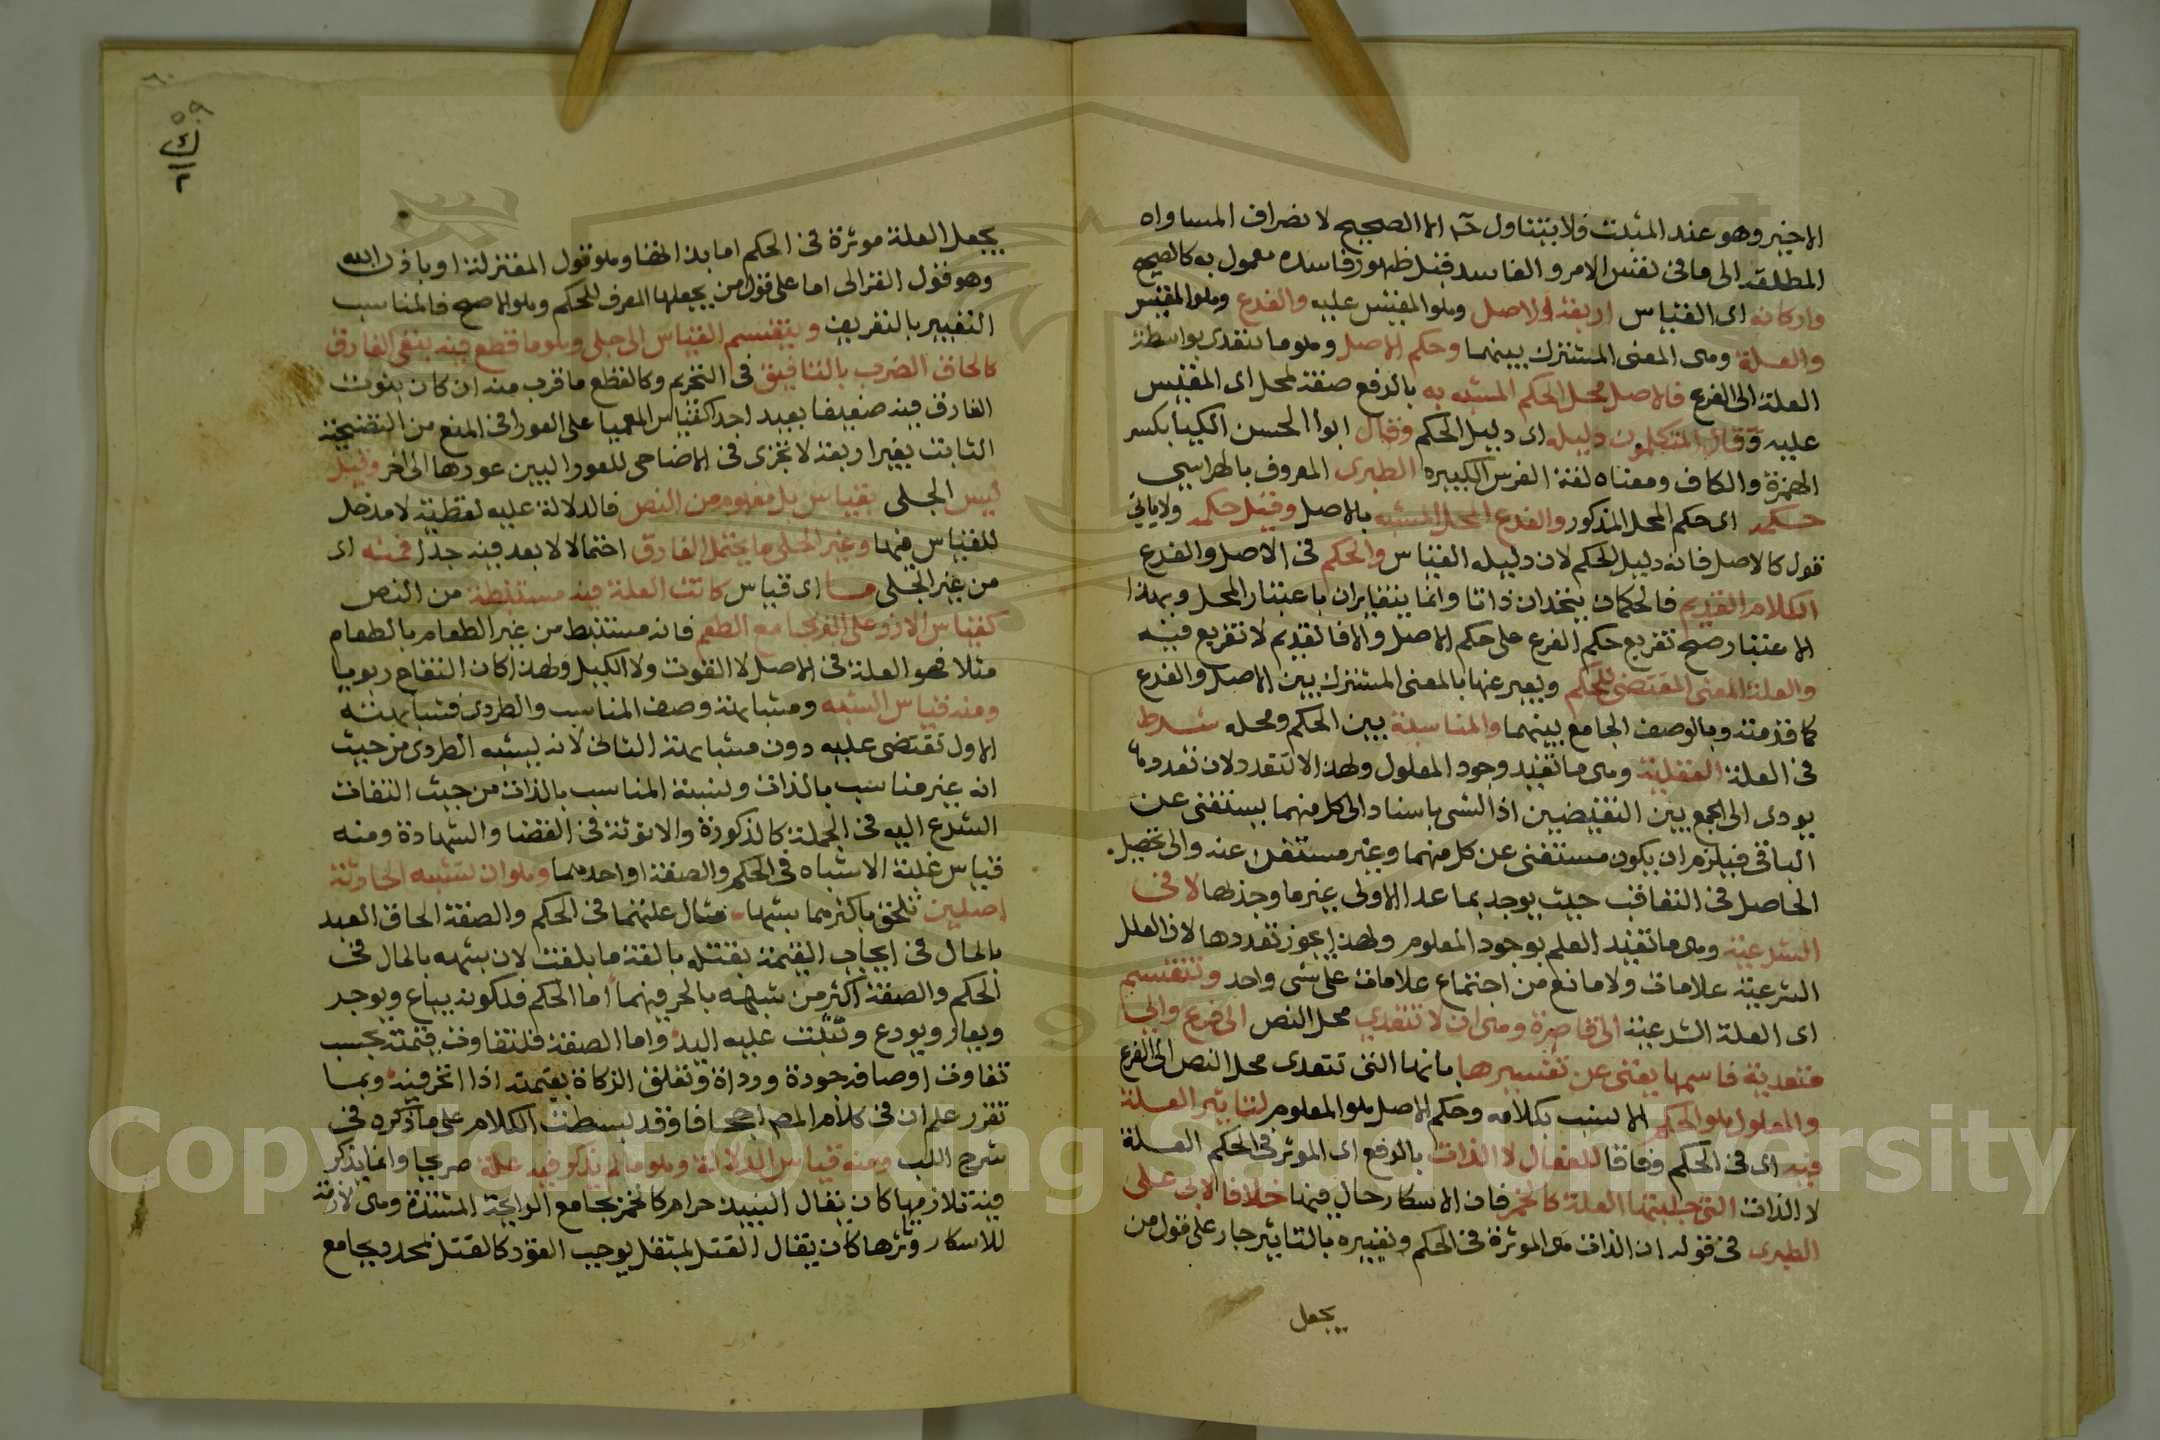 الاخير وهو عند المثبت فلا يتناول حـ الا الصحيح لانصراف المساواه
المطلقة الى ما فى نفس الامر والفاسد قبل ظهور فساده معمول به كالصحيح
واركانه اى القياس اربعة الاصل وهو المقيس عليه والفرع وهو المقيس
والعلة وهى المعنى المشترك بينهما وحكم الاصل وهو ما يتعدى بواسطة
العلة الى الفرع فالاصل محل الحكم المشبه به بالرفع صفة لمحل اى المقيس
عليه وقال المتكلمون دليله اى دليل الحكم وقال ابوا الحسن الكيا بكسر
الهمزة والكاف ومعناه لغة الفرس الكبيره الطبرى المعروف بالهراسي
حكمه اى حكم المحل المذكور والفرع المحل المشبه بالاصل وقيل حكمه ولا ياتى
قول كالاصل فانه دليل الحكم لان دليله القياس والحكم فى الاصل والفرع
الكلام القديم فالحكمان يتحدان ذاتا وانما يتغايران باعتبار المحل وبهذا
الاعتبار صح تفريع حكم الفرع على حكم الاصل والا فالقديم لا تفريع فيه
والعلة المعنى المقتضى للحكم ويعبر عنها بالمعنى المشترك بين الاصل والفرع
كما قدمته وبالوصف الجامع بينهما والمناسبة بين الحكم ومحله شرط
فى العلة العقلية وهى ما تفيد وجود المعلول ولهذا لا تتعدد لان تعددها
يودى الى الجمع بين النقيضين اذ الشى باسناده الى كل منهما يستغنى عن
الباقى فيلزم ان يكون مستغنى عن كل منهما وغير مستغن عنه والى تحصيل
الحاصل فى التعاقب حيث يوجد بما عدا الاولى غير ما وجد لها لا فى
الشرعية وهى ما تفيد العلم بوجود المعلوم ولهذا يجوز تعددها لان العلل
الشرعية علامات ولا مانع من اجتماع علامات على شى واحد وتنقسم
اى العلة الشرعية الى قاصرة وهى ان لا تتعدي محل النص الى فرع والى
متعدية فاسمها يغنى عن تفسيرها بانها التى تتعدى محل النص الى الفرع
والمعلول هو الحكم الانسب بكلامه وحكم الاصل هو المعلوم لتاثير العلة
فيه اى فى الحكم وفاقا للقفال لا الذات بالرفع اى الموثر فى الحكم العلة
لا الذات التى حلتها العلة كالخمر فان الاسكار حال فيها خلافا لابى على
الطبرى فى قوله ان الذات هى الموثرة فى الحكم وتعبيره بالتاثير جار على قول من
يجعل
يجعل العلة موثرة فى الحكم اما بذاتها وهو قول المعتزلة او باذن الله
وهو قول الغزالى اما على قول من يجعلها المعرف للحكم وهو الاصح فالمناسب
التعبير بالتعريف وينقسم القياس الى جلى وهو ما قطع فيه بنفى الفارق
كالحاق الضرب بالتافيف فى التحريم وكالقطع ما قرب منه ان كان ثبوت
الفارق فيه ضعيفا بعيد اجدا كقياس العميا على العورا فى المنع من التضحية
الثابت بخبر اربعة لا تجزى فى الاضاحى للعورا البين عورها الى اخر وقيل
ليس الجلى بقياس بل مفهوم من النص فالدلالة عليه لفظية لا مدخل
للقياس فيها وغير الجلى ما يحتمل الفارق احتمالا لا بعد فيه جدا فمنه اى
من غير الجلى ما اى قياس كانت العلة فيه مستنبطة من النص
كقياس الارز على البر بجامع الطعم فانه مستنبط من غير الطعام بالطعام
مثلا فهو العلة فى الاصل لا القوت ولا الكيل ولهذا كان التفاح ربويا
ومنه قياس الشبه ومشابهته وصف المناسب والطردى فشابهته
الاول تقتضى عليه دون مشابهته الثانى لانه يشبه الطردى من حيث
انه غير مناسب بالذات ويشبه المناسب بالذات من حيث التفات
الشرع اليه فى الجملة كالذكورة والانوثة فى القضا والشهادة ومنه
قياس غلبة الاشباه فى الحكم والصفة او احدهما وهو ان تشبه الحادثة
اصلين تلحق باكثرهما شبها مثال علتهما فى الحكم والصفة الحاق العبد
بالمال فى ايجاب القيمة بقتله بالغة ما بلغت لان شبهه بالمال فى
الحكم والصفة اكثر من شبهه بالحر فيهما اما الحكم فلكونه يباع ويوجر
ويعار ويودع وتثبت عليه اليد واما الصفة فلتفاوت قيمته بحسب
تفاوت اوصافه جودة ورداة وتعلق الزكاة بقيمته اذا اتجر فيه وبما
تقرر علم ان فى كلام المص اجحافا وقد بسطت الكلام على ما ذكره فى
شرح اللب ومنه قياس الدلالة وهو ما لم يذكر فيه علة صريحا وانما يذكر
فيه تلازمها كان يقال النبيذ حرام كالخمر بجامع الرايحة المشتدة وهى لازمة
للاسكار واثرها كان يقال القتل بمثقل يوجب القود كالقتل بمحدد بجامع
٦٠
٥٩
Copyright © King Saud University